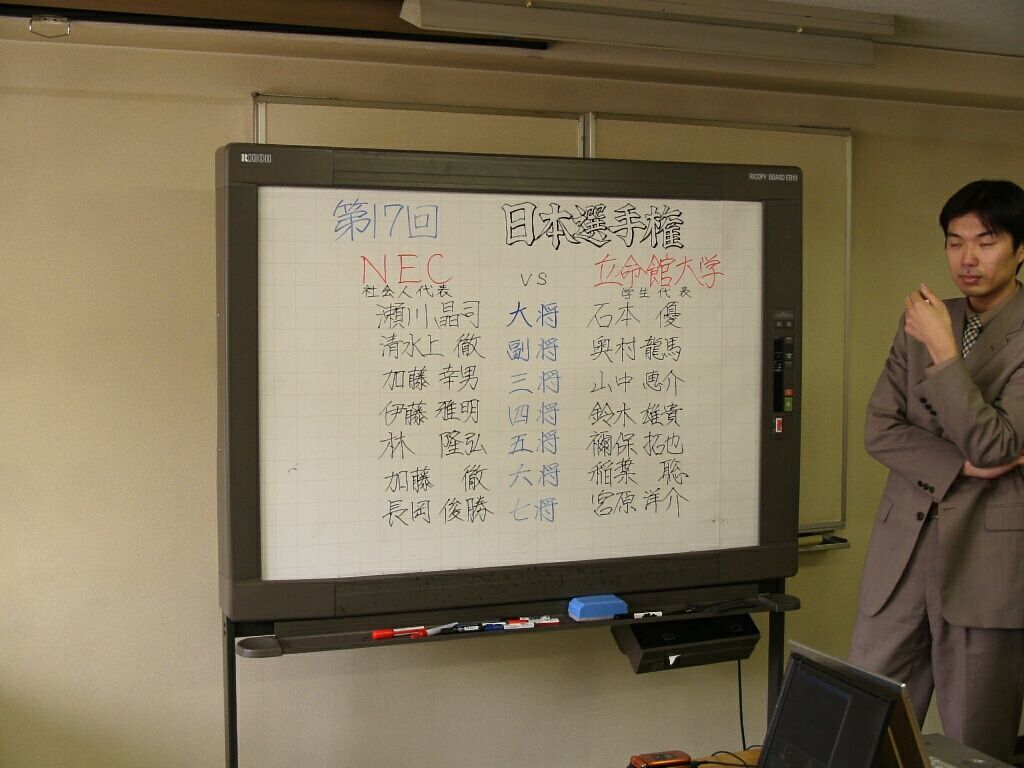 RICOH
RICOPY BOARD E810
第17回 日本選手権
NEC vs 立命館大学
社会人代表 学生代表
瀬川晶司 大将 石本 優
清水上 徹 副将 奥村龍馬
加藤 幸男 三将 山中 恵介
伊藤 雅明 四将 鈴木 雄貴
林 隆弘 五将 禰保 拓也
加藤 徹 六将 稲葉 聡
長岡 俊勝 七将 宮原 洋介